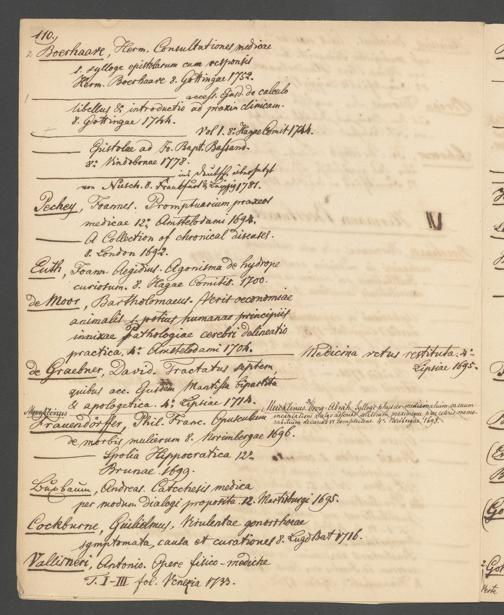 110.
2. Boerhaave, Herm. Consultationes medicae
s. sylloge epistolarum cum responsis
Herm. Boerhaave 8. Göttingae 1752.
1 access. Ejusd. de calculo
libellus & introductio ad praxin clinicam.
8. Gottingae 1744.
Vol I. 8. Hagae Comit 1744.
Epistolae ad Jo. Bapt. Bassand.
8. Vindobonae 1778.
ins Deutsche übersetzt
von Nusch. 8. Frankfurt & Leipzig 1781.
Pechey, Joannes. Promptuarium praxeos
medicae 12. Amstelodami 1694.
A Collection of chronical diseases.
8. London 1692.
Euth, Joann. Aegidius. Agonisma de hydrope
curiosum. 8. Hagae Comitis. 1700.
de Moor, Bartholomaeus. Veris oeconomiae
animalis & potius humanae principiis
innixae Pathologiae cerebri delineatio
practica. 4. Amstelodami 1704. Medicina vetus restituta. 4.
Lipsiae 1695.
de Graebner, David. Tractatus septem,
quibus acc. Ejusdem Mantissa tripartita
& apologetica. 4. Lipsiae 1714.
Frauendorffer, Phil. Franc. Opusculum
de morbis mulierum 8. Norimbergae 1696.
Spolia Hippocratica 12.
Brunae 1699.
Buxbaum, Andreas. Catechesis medica
per modum dialogi proposita. 12. Martisburgi 1695.
Cockburne, Guilielmus, Virulentae gonorrhoeae
symptomata, causa et curationes 8. Lugd Bat 1716.
Vallisneri, Antonio. Opere fisico-mediche
T. I-III fol. Venezia 1733.